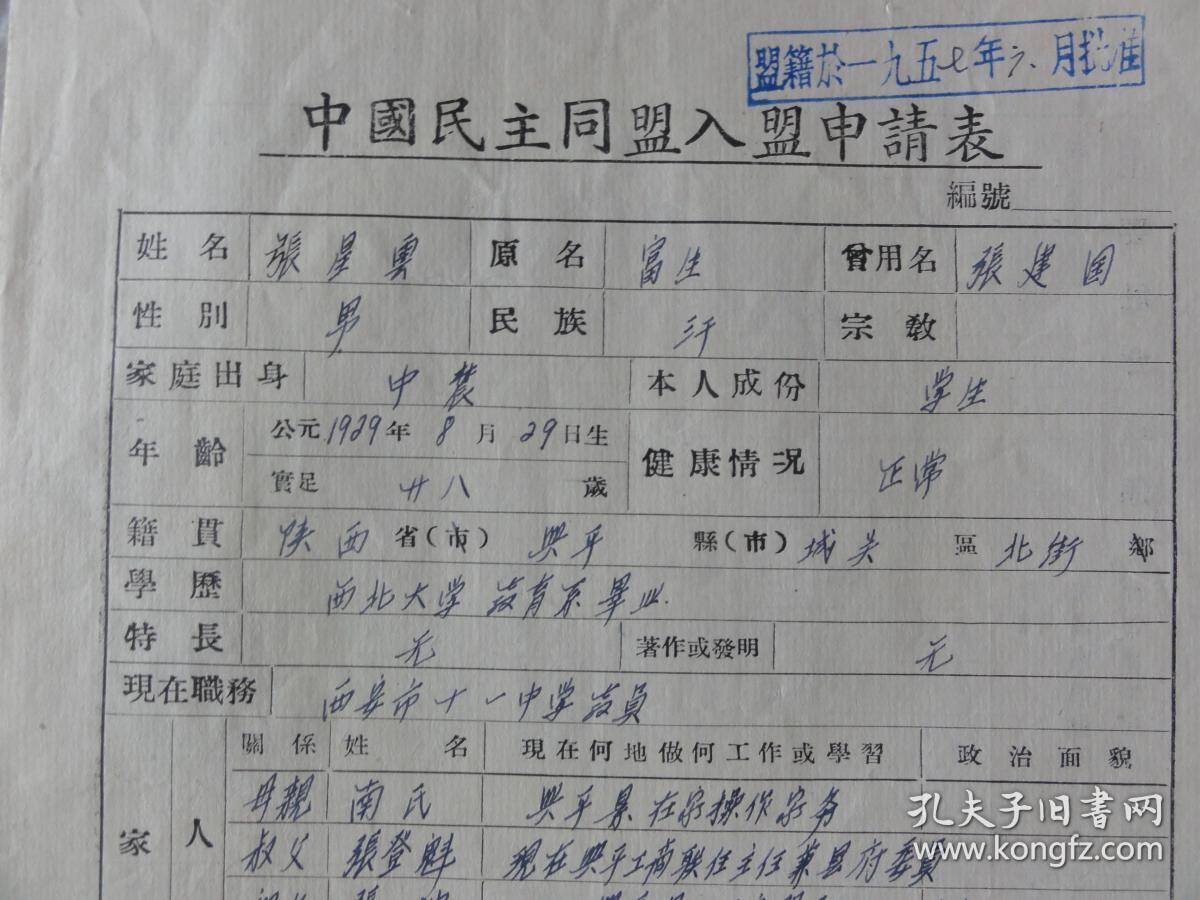 盟籍於一九五七年六月批准
中國民主同盟入盟申請表
編號
姓名 張星 原名 富生 曾用名 張建国
性別 男 民族 汗 宗教
家庭出身 中農 本人成份 学生
年齡 公元1929年8月29日生 健康情况 正常
實足 廿八 歲
籍貫 陕西 省(市) 興平 縣(市) 城关 區 北街 鄉
學歷 西北大学 教育系畢业.
特長 无 著作或發明 无
現在職務 西安市十一中学教員
關係 姓名 現在何地做何工作或學習 政治面貌
家 人 母親 南氏 興平县在家操作家务
叔父 張登魁 現在興平工商联任主任兼县府委員
孔夫子旧书网
www.kongfz.com